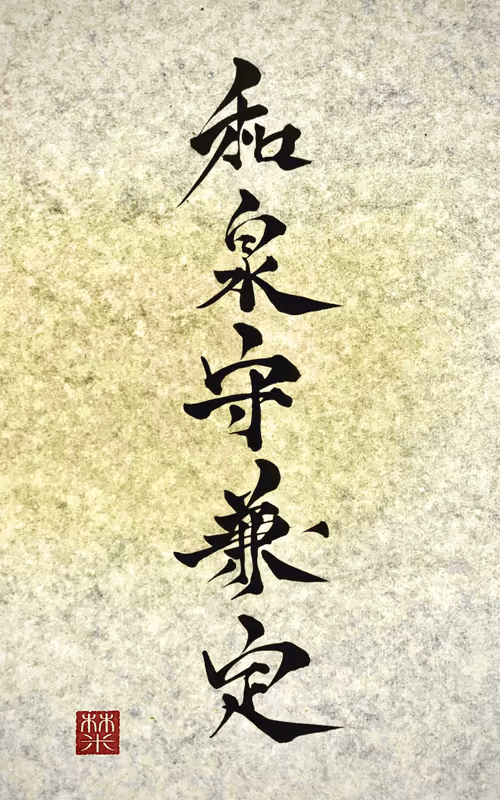 和泉守兼定